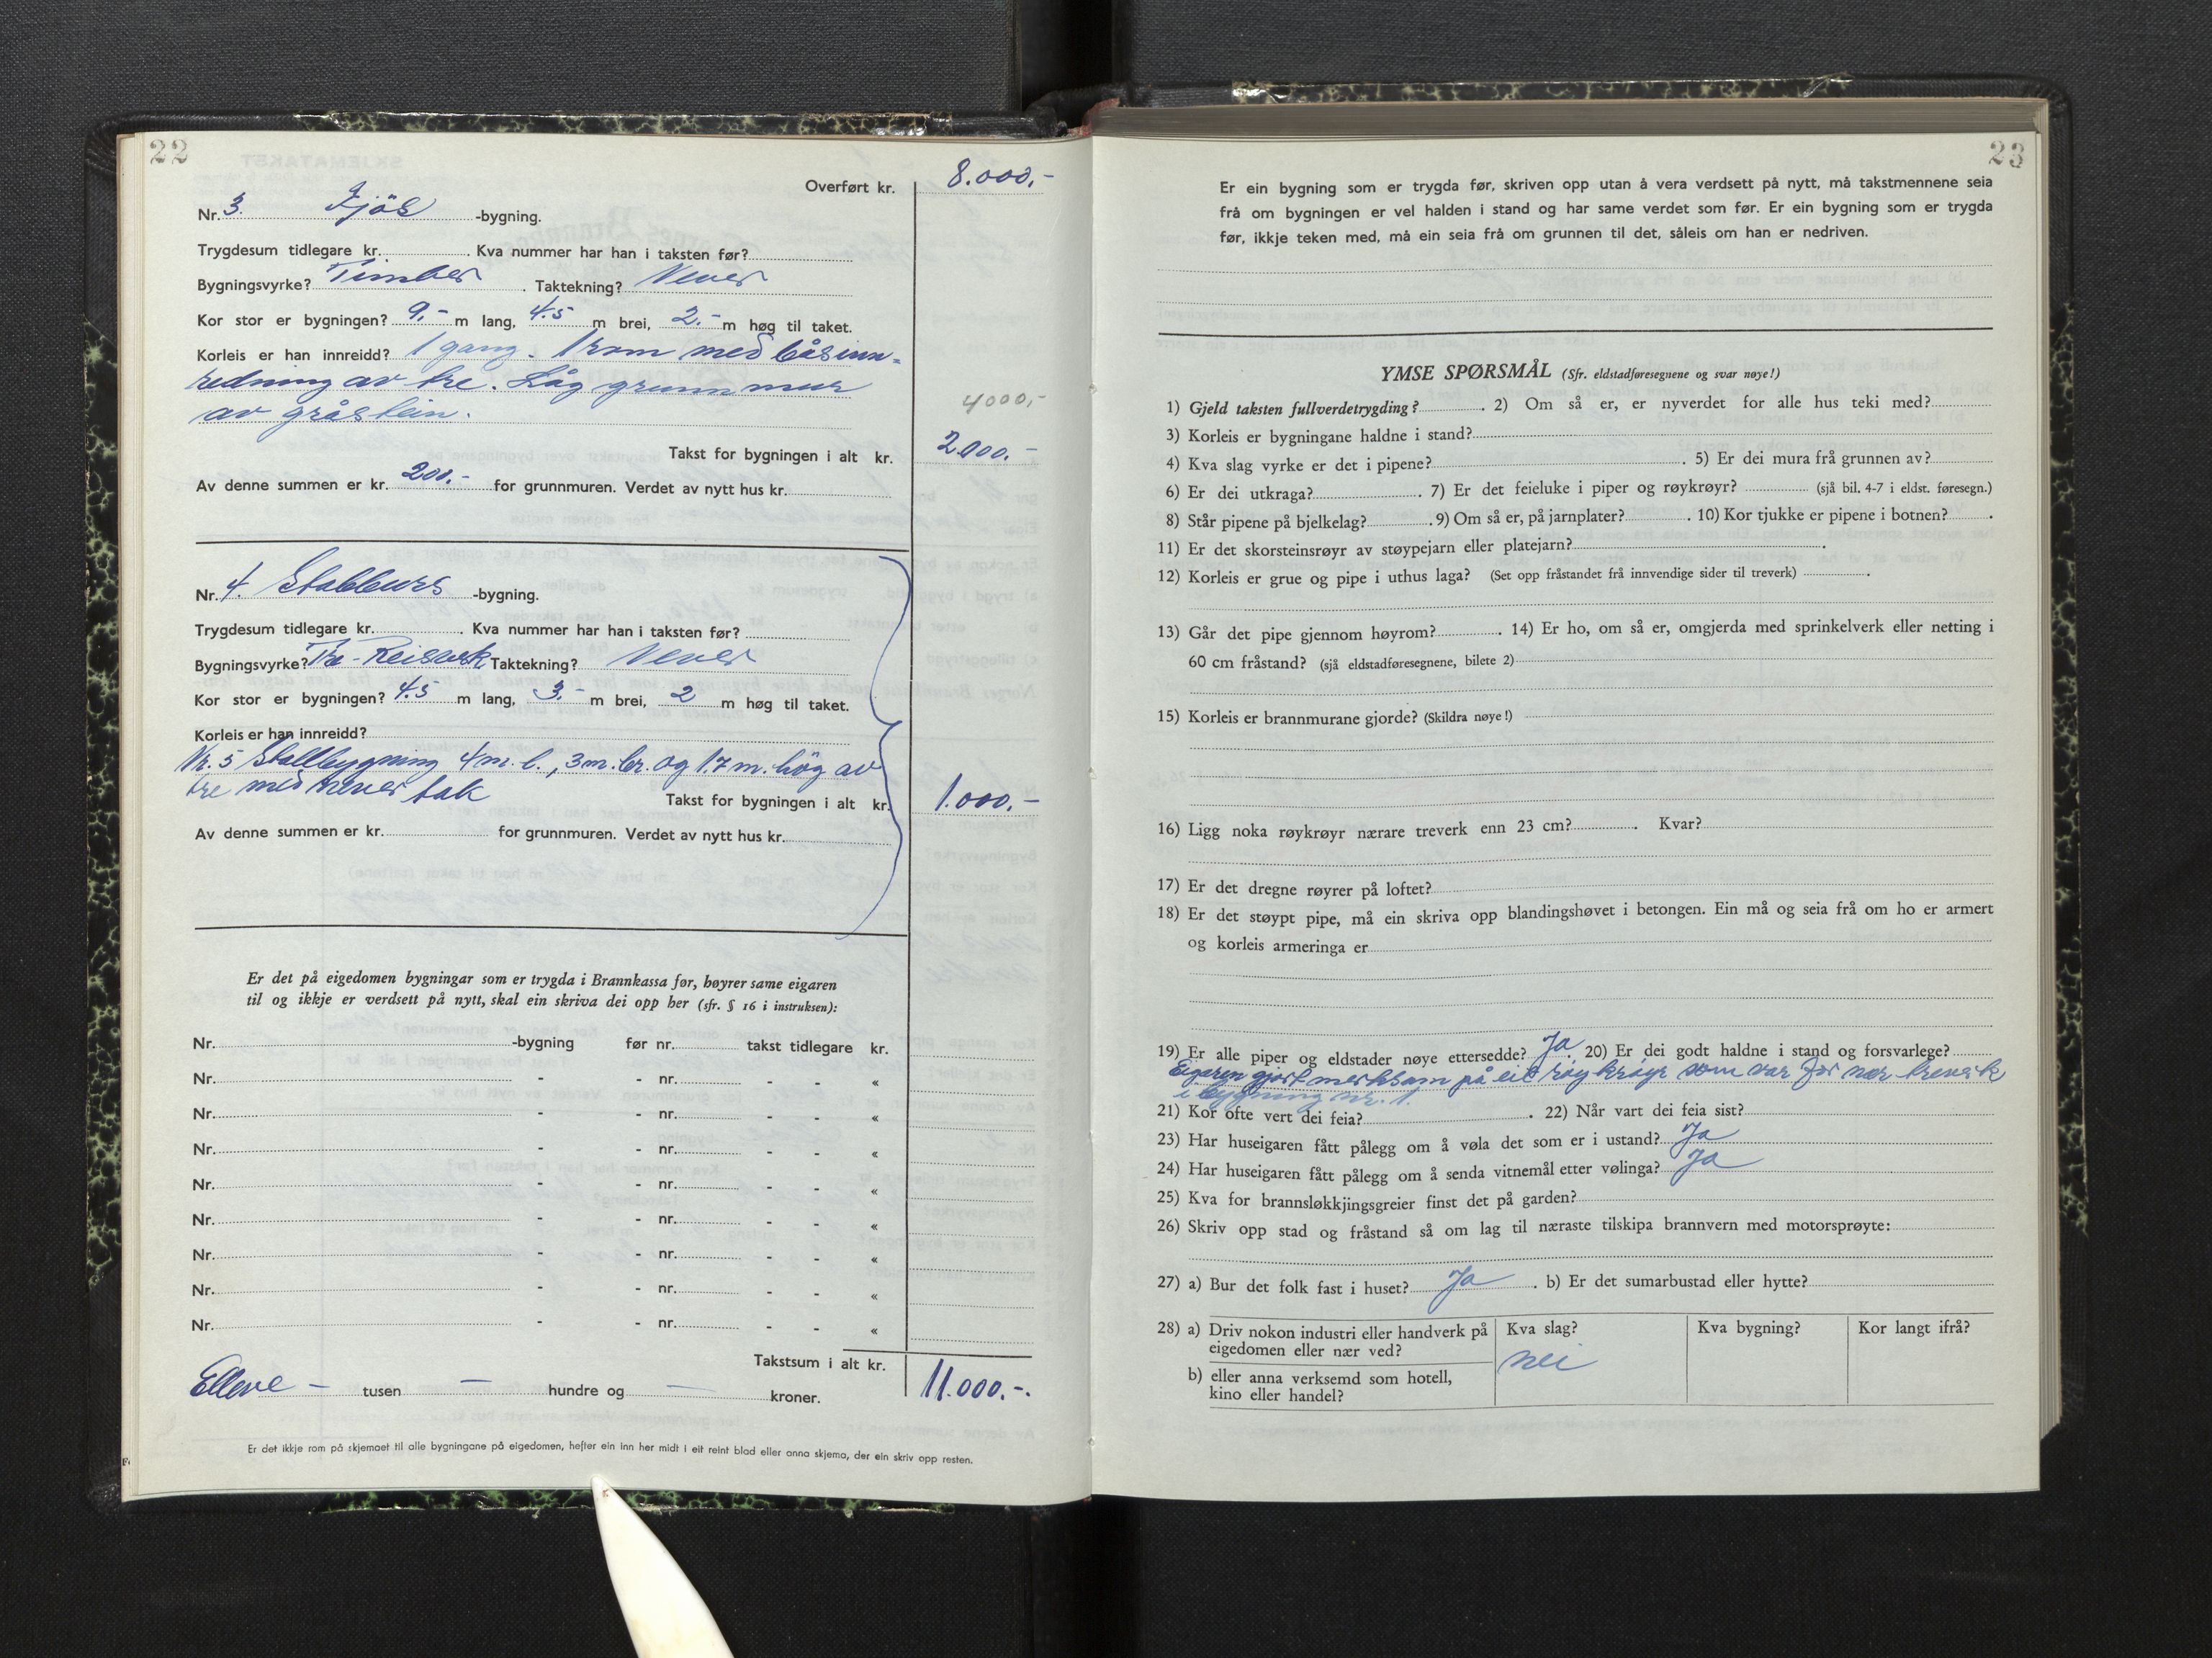 22
Overført kr. 8.000,-
Nr. 3. Fjös -bygning.
Trygdesum tidlegare kr. Kva nummer har han i taksten før?
Bygningsvyrke? Timber. Taktekning? Never
Kor stor er bygningen? 9,- m lang, 4.5 m brei, 2.- m høg til taket.
Korleis er han innreidd? 1 gang. 1 rom med båsinn=
redning av tre. Låg grunnmur
av gråstein.
4000,-
Takst for bygningen i alt kr. 2000.-
Av denne summen er kr. 200.- for grunnmuren. Verdet av nytt hus kr.
Nr. 4. Stabburs -bygning.
Trygdesum tidlegare kr. Kva nummer har han i taksten før?
Bygningsvyrke? Tre-Reisverk Taktekning? Never
Kor stor er bygningen? 4.5 m lang, 3.- m brei, 2 m høg til taket.
Korleis er han innreidd?
Nr. 5 Stallbygning 4 m. l., 3 m. br. og 1.7 m. hög av
tre med never tak
Takst for bygningen i alt kr. 1.000,-
Av denne summen er kr. for grunnmuren. Verdet av nytt hus kr.
Er det på eigedomen bygningar som er trygda i Brannkassa før, høyrer same eigaren
til og ikkje er verdsett på nytt, skal ein skriva dei opp her (sfr. § 16 i instruksen):
Nr. -bygning før nr. takst tidlegare kr.
Nr. - - nr. - - «
Nr. - - nr. - - «
Nr. - - nr. - - «
Nr. - - nr. - - «
Nr. - - nr. - - «
Nr. - - nr. - - «
Nr. - - nr. - - «
Nr. - - nr. - - «
Takstsum i alt kr. 11.000.-.
Elleve - tusen - hundre og - kroner.
Er det ikkje rom på skjemaet til alle bygningane på eigedomen, hefter ein inn her midt i eit reint blad eller anna skjema, der ein skriv opp resten.
23
Er ein bygning som er trygda før, skriven opp utan å vera verdsett på nytt, må takstmennene seia
frå om bygningen er vel halden i stand og har same verdet som før. Er ein bygning som er trygda
før, ikkje teken med, må ein seia frå om grunnen til det, såleis om han er nedriven.
YMSE SPØRSMÅL (Sfr. eldstadføresegnene og svar nøye!)
1) Gjeld taksten fullverdetrygding? . 2) Om så er, er nyverdet for alle hus teki med?
3) Korleis er bygningane haldne i stand?
4) Kva slag vyrke er det i pipene? . 5) Er dei mura frå grunnen av?
6) Er dei utkraga? . 7) Er det feieluke i piper og røykrøyr? (sjå bil. 4-7 i eldst. føresegn.)
8) Står pipene på bjelkelag? . 9) Om så er, på jarnplater? . 10) Kor tjukke er pipene i botnen? .
11) Er det skorsteinsrøyr av støypejarn eller platejarn? .
12) Korleis er grue og pipe i uthus laga? (Set opp fråstandet frå innvendige sider til treverk) .
13) Går det pipe gjennom høyrom? . 14) Er ho, om så er, omgjerda med sprinkelverk eller netting i
60 cm fråstand? (sjå eldstadføresegnene, bilete 2)
15) Korleis er brannmurane gjorde? (Skildra nøye!)
16) Ligg noka røykrøyr nærare treverk enn 23 cm? . Kvar?
17) Er det dregne røyrer på loftet?
18) Er det støypt pipe, må ein skriva opp blandingshøvet i betongen. Ein må og seia frå om ho er armert
og korleis armeringa er
19) Er alle piper og eldstader nøye ettersedde? Ja. 20) Er dei godt haldne i stand og forsvarlege?
Eigeren gjort merksam på eit röykröyr som var for nær treverk
i bygning nr. 1.
21) Kor ofte vert dei feia? . 22) Når vart dei feia sist?
23) Har huseigaren fått pålegg om å vøla det som er i ustand? Ja
24) Har huseigaren fått pålegg om å senda vitnemål etter vølinga? Ja
25) Kva for brannsløkkjingsgreier finst det på garden?
26) Skriv opp stad og fråstand så om lag til næraste tilskipa brannvern med motorsprøyte:
27) a) Bur det folk fast i huset? Ja . b) Er det sumarbustad eller hytte?
28) a) Driv nokon industri eller handverk på
eigedomen eller nær ved?
b) eller anna verksemd som hotell,
kino eller handel?
Kva slag?
nei
Kva bygning?
Kor langt ifrå?